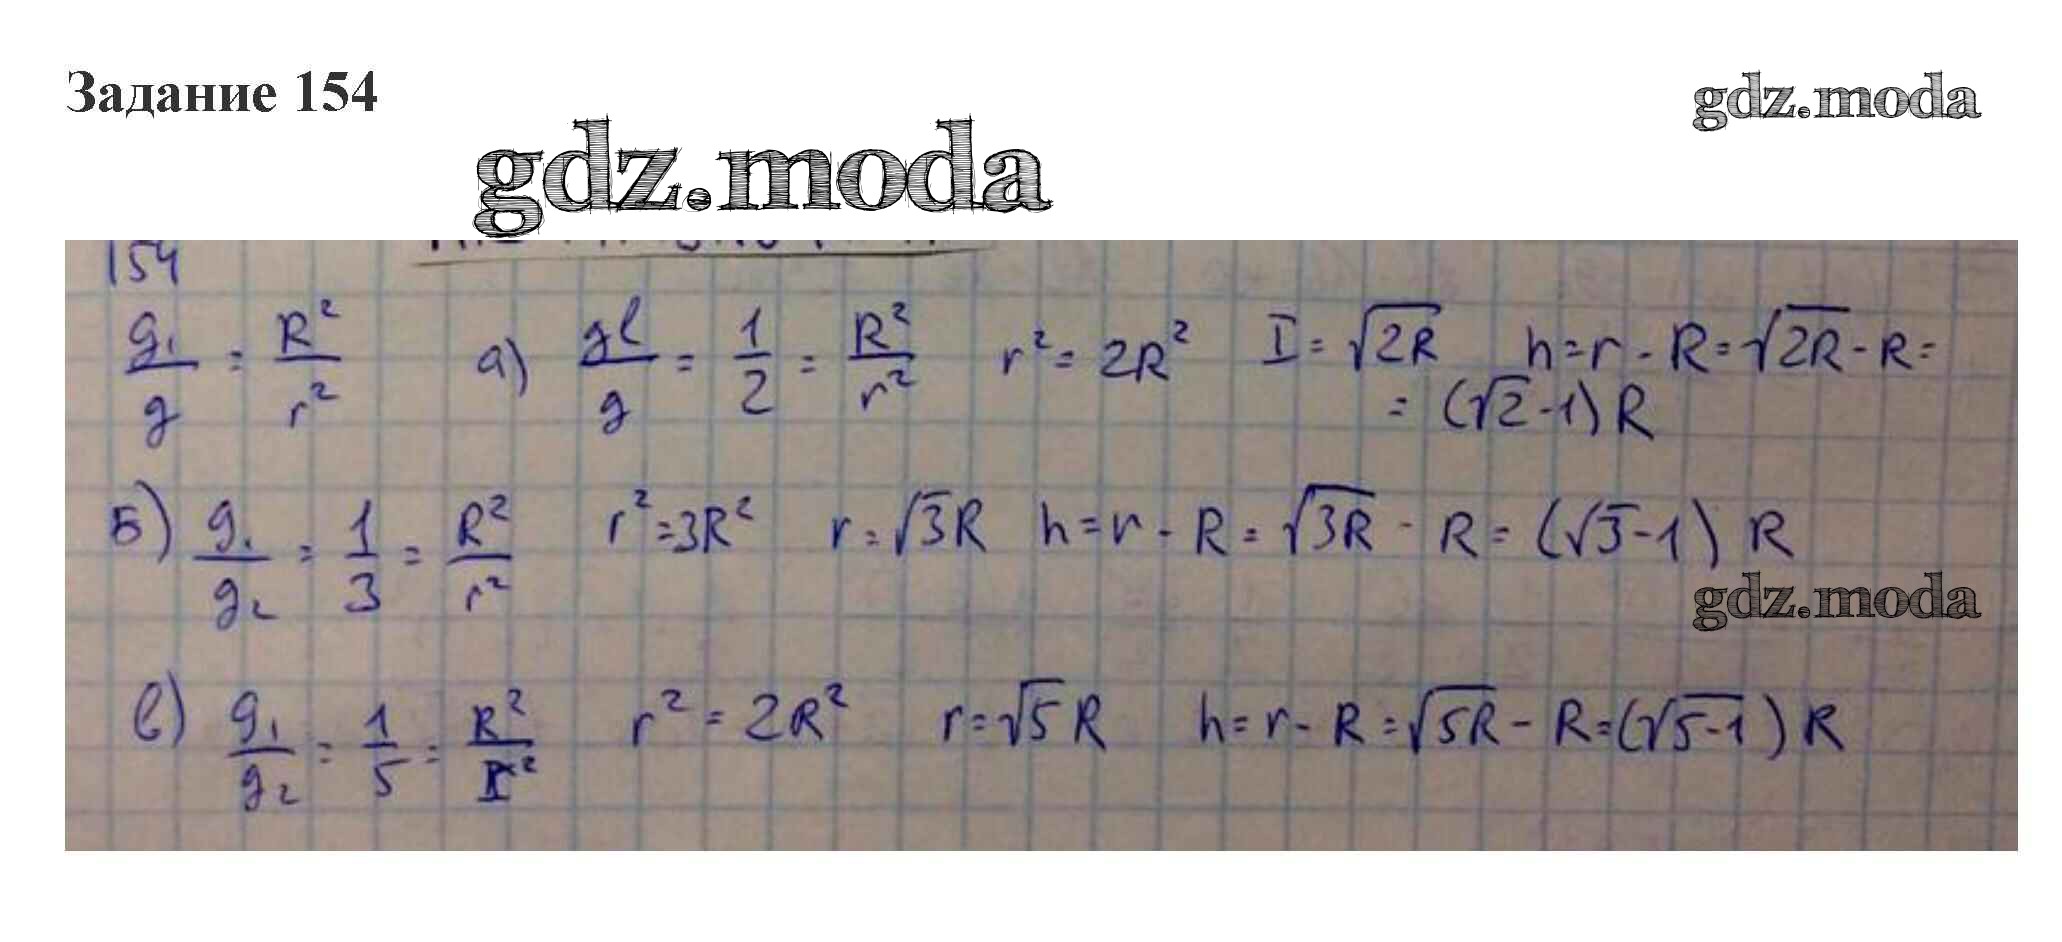 Задание 154
gdz.moda
gdz.moda
154
g₁/g = R²/r² а) gl/g = 1/2 = R²/r² r² = 2R² I = √2R h = r - R = √2R - R =
= (√2 - 1) R
Б) g₁/g₂ = 1/3 = R²/r² r² = 3R² r = √3R h = r - R = √3R - R = (√3 - 1) R
gdz.moda
в) g₁/g₂ = 1/5 = R²/r² r² = 2R² r = √5R h = r - R = √5R - R = (√5-1) R